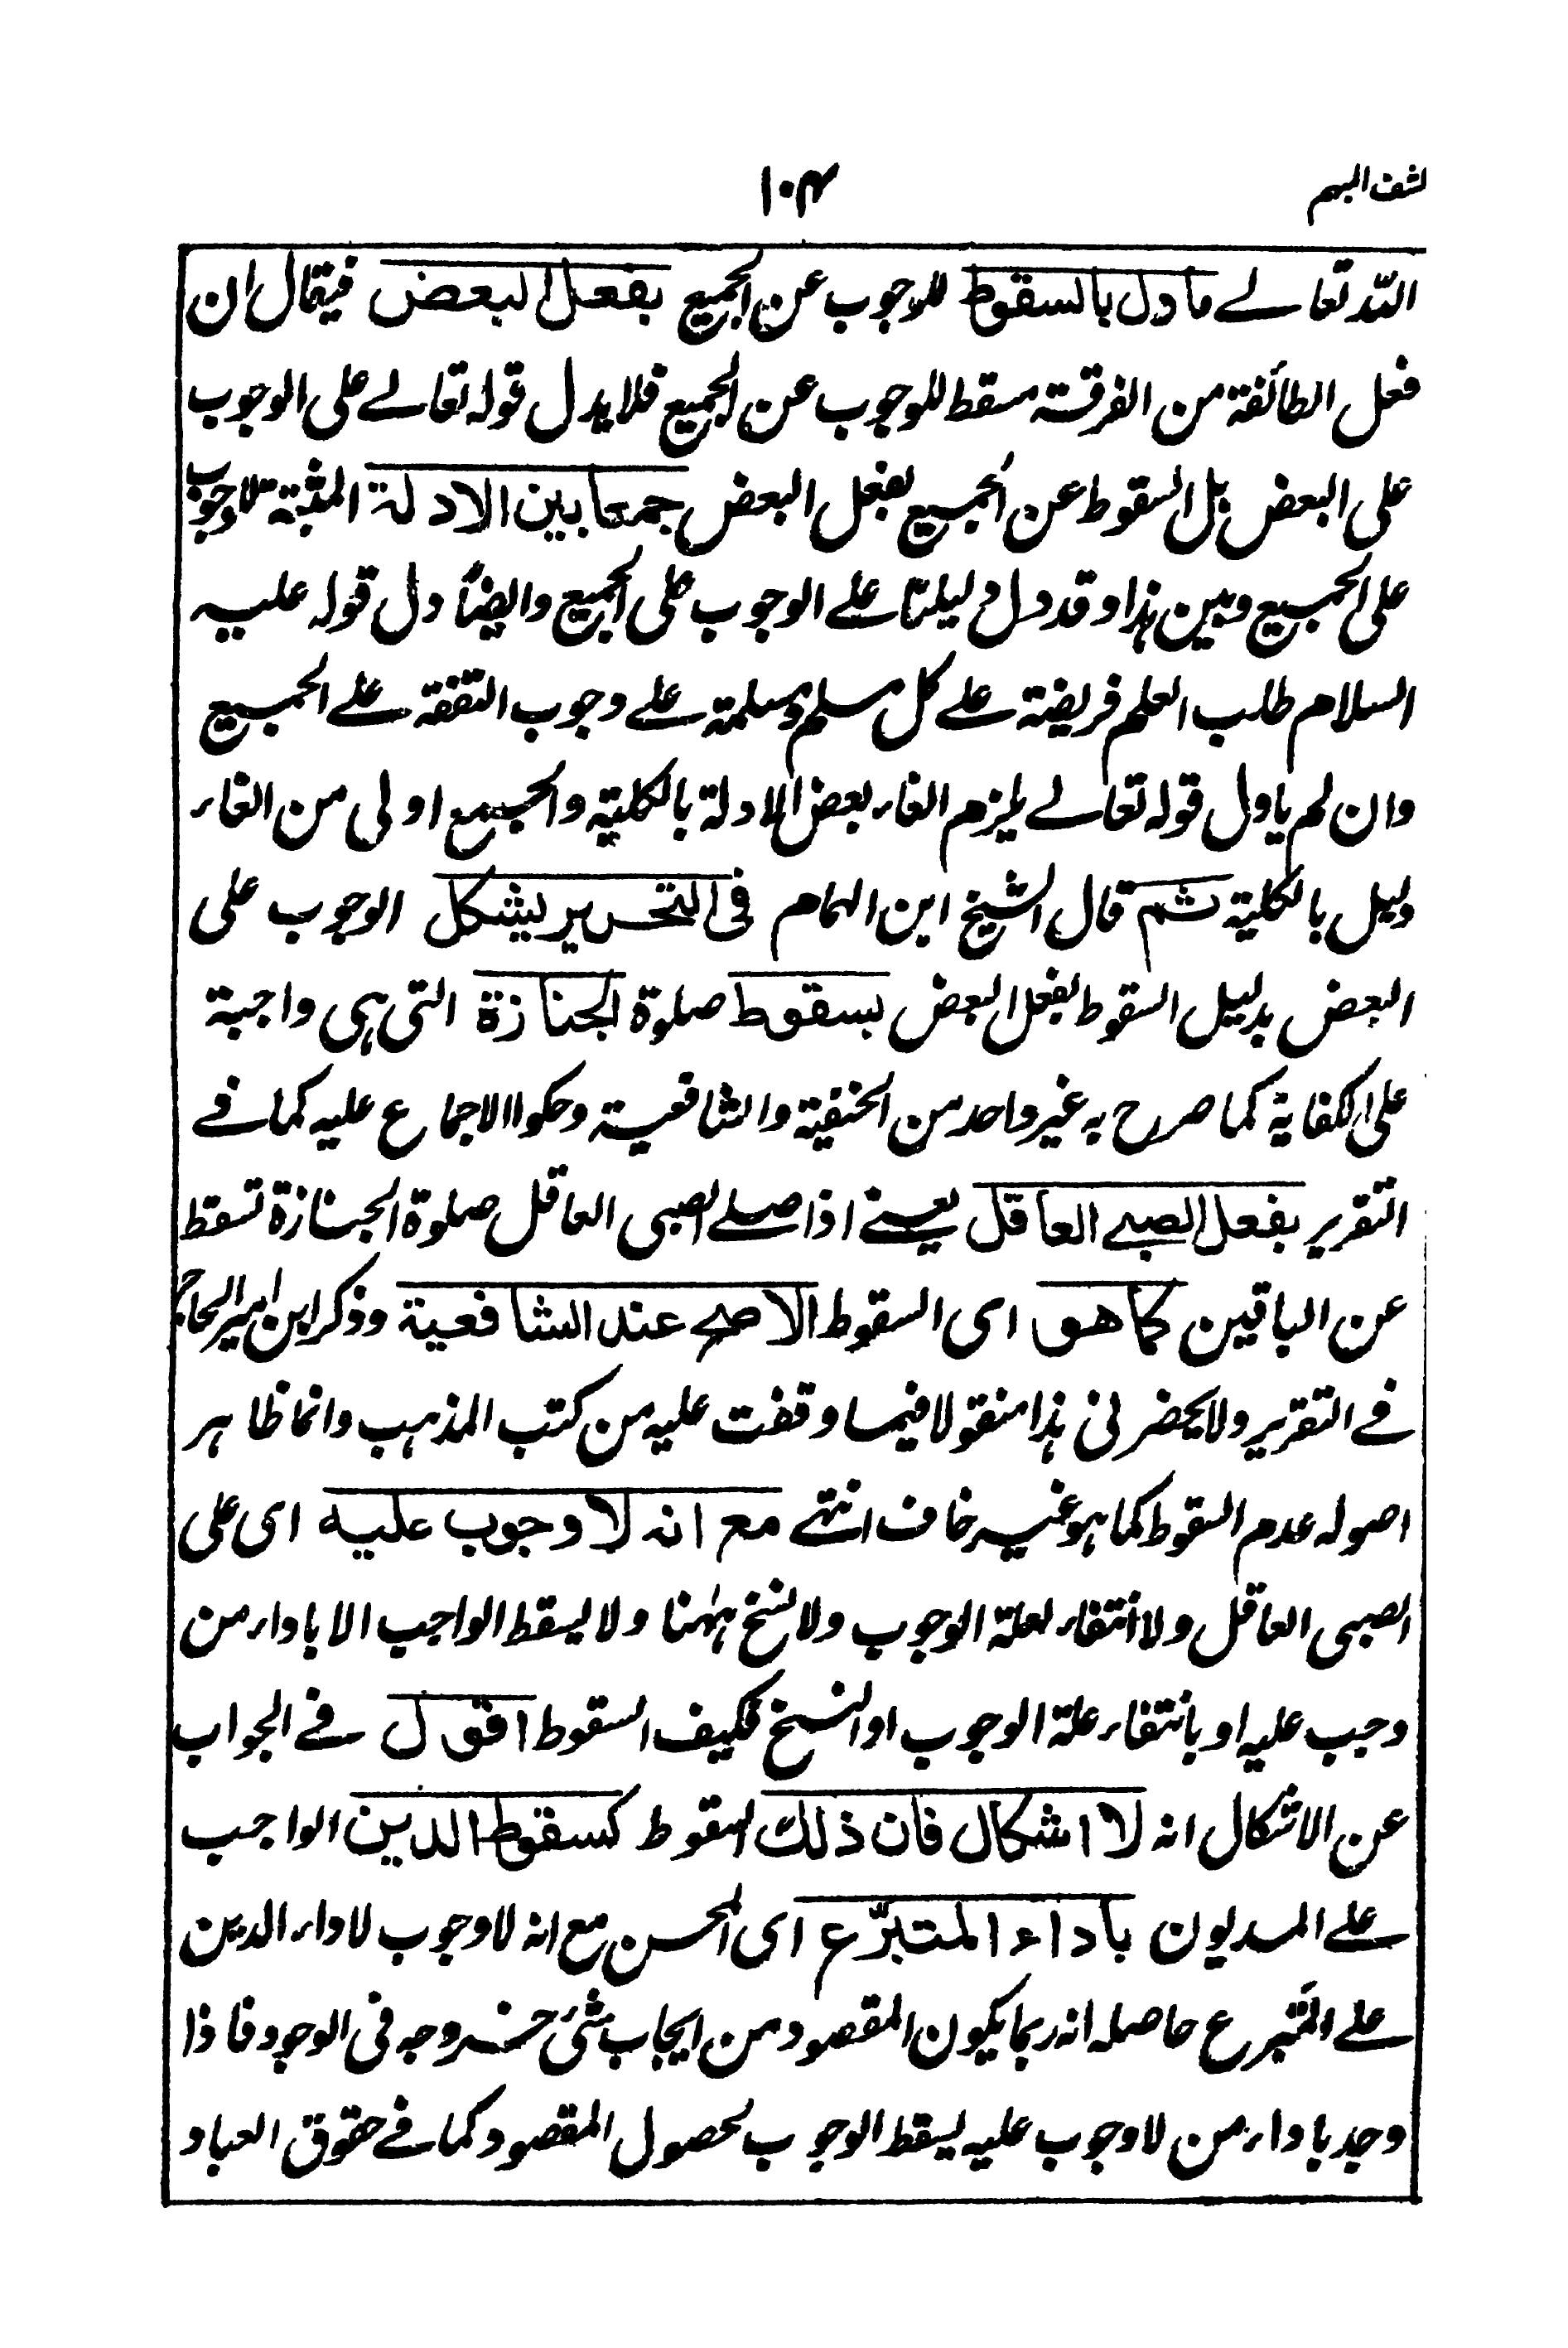 كشف المبهم
۱۰۴
اللّه تعالے مادل بالسقوط للوجوب عن الجميع بفعل البعض فيقال ان
فعل الطائفة من الفرقة مسقط للوجوب عن الجميع فلا يدل قوله تعالے على الوجوب
على البعض بل السقوط عن الجميع بفعل البعض جمعا بين الادلة المثبتة للوجوب
على الجميع وبين هذا وقد دل دليلنا علے الوجوب على الجميع وايضاً دل قوله عليه
السلام طلب العلم فريضة علے كل مسلم ومسلمة علے وجوب التفقه علے الجميع
وان لم ياول قوله تعالے يلزم الغاء بعض الادلة بالكلية والجميع اولى من الغاء
دليل بالكلية ثم قال الشيخ ابن الهمام فى التحرير يشكل الوجوب على
البعض بدليل السقوط بفعل البعض بسقوط صلوة الجنازة التى هى واجبة
على الكفاية كما صرح به غير واحد من الحنفية والشافعية وحكوا الاجماع عليه كما فے
التقرير بفعل الصبے العاقل يعنے اذا صلے الصبى العاقل صلوة الجنازة تسقط
عن الباقين كما هو اى السقوط الاصح عند الشافعية وذكر ابن امير الحاج
فے التقرير ولا يحضرنى هذا منقولا فيما وقفت عليه من كتب المذهب وانما ظاهر
اصوله عدم السقوط كما هو غير خاف انتهے مع انه لا وجوب عليه اى على
الصبى العاقل ولا انتفاء لعلة الوجوب ولا نسخ ههنا ولا يسقط الواجب الا باداء من
وجب عليه او بانتفاء علة الوجوب او النسخ فكيف السقوط اقول فے الجواب
عن الاشكال انه لا اشكال فان ذلك السقوط كسقوط الدين الواجب
علے المديون باداء المتبرّع اى المحسن مع انه لا وجوب لاداء الدين
علے المتبرع حاصله انه ربما يكون المقصود من ايجاب شئ خروجه فى الوجود فاذا
وجد باداء من لا وجوب عليه يسقط الوجوب لحصول المقصود كما فے حقوق العباد